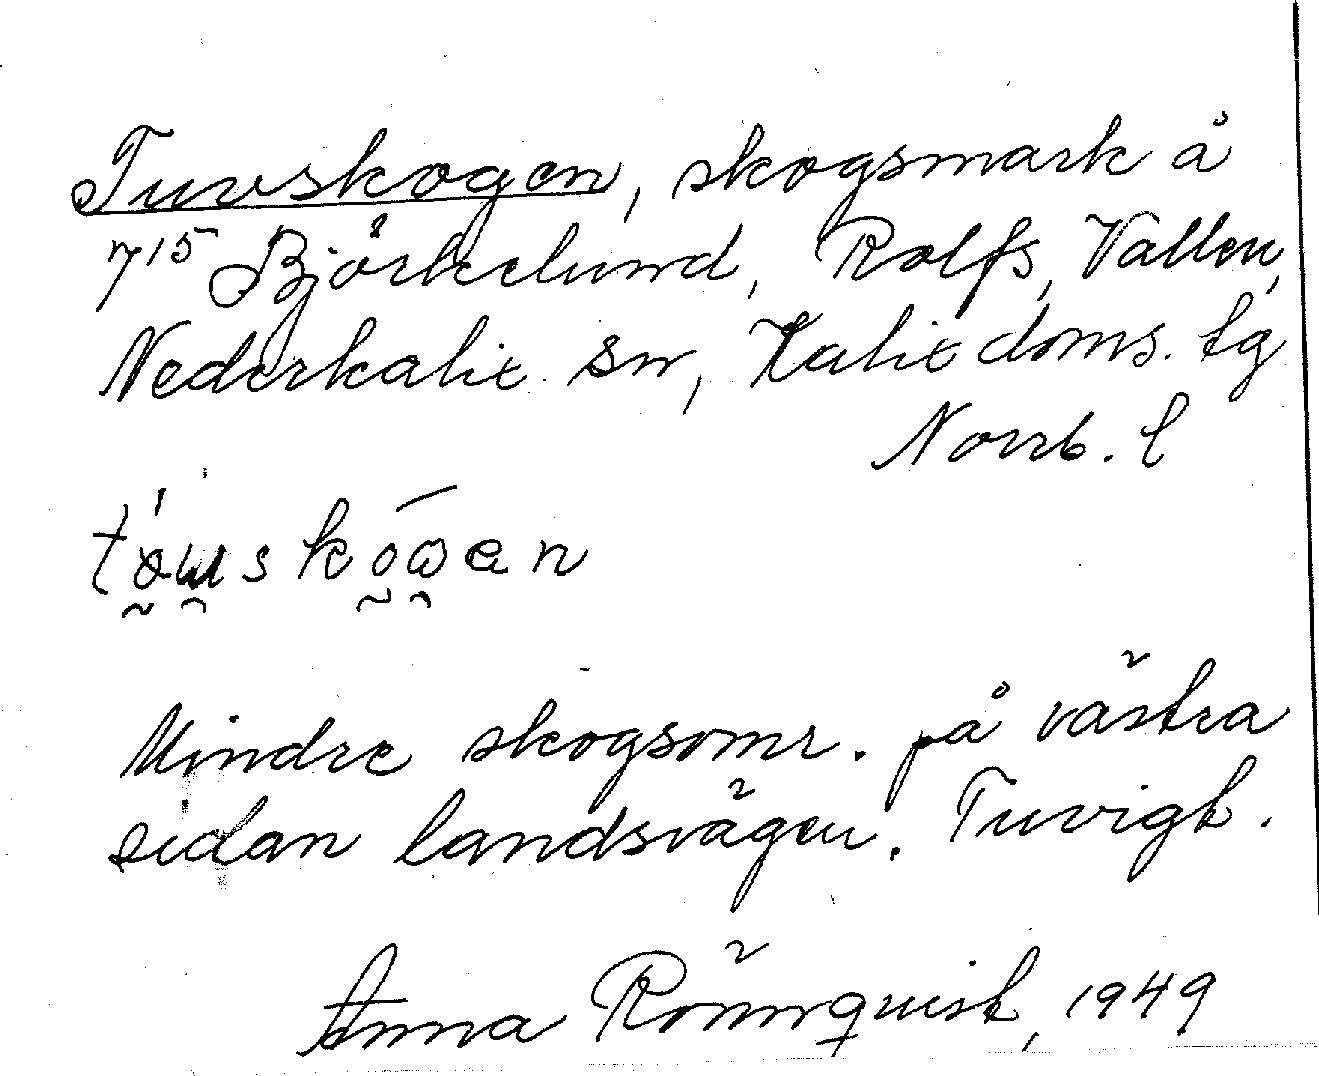 Tuvskogen, skogsmark å
7¹⁵ Björkelund, Rolfs, Vallen,
Nederkalix sn, Kalix doms. lg
Norrb. l
Mindre skogsomr. på västra
sidan landsvägen. Tuvigt.
Anna Rönnquist, 1949